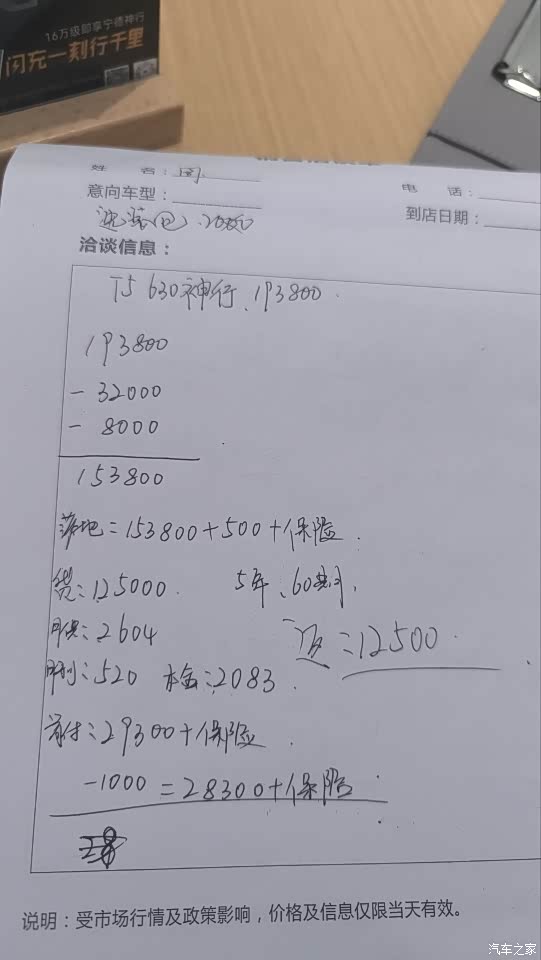 16万级即享宁德神行
闪充一刻行千里
姓 名：周
电 话：
意向车型：
到店日期：
洽谈信息：
T5 630神行、193800.
193800
- 32000
- 8000
153800
落地=153800+500+保险.
贷：125000. 5年、60期.
月供：2604
返：12500.
月利：520 本金：2083.
首付：29300+保险.
-1000=28300+保险
说明：受市场行情及政策影响，价格及信息仅限当天有效。
汽车之家